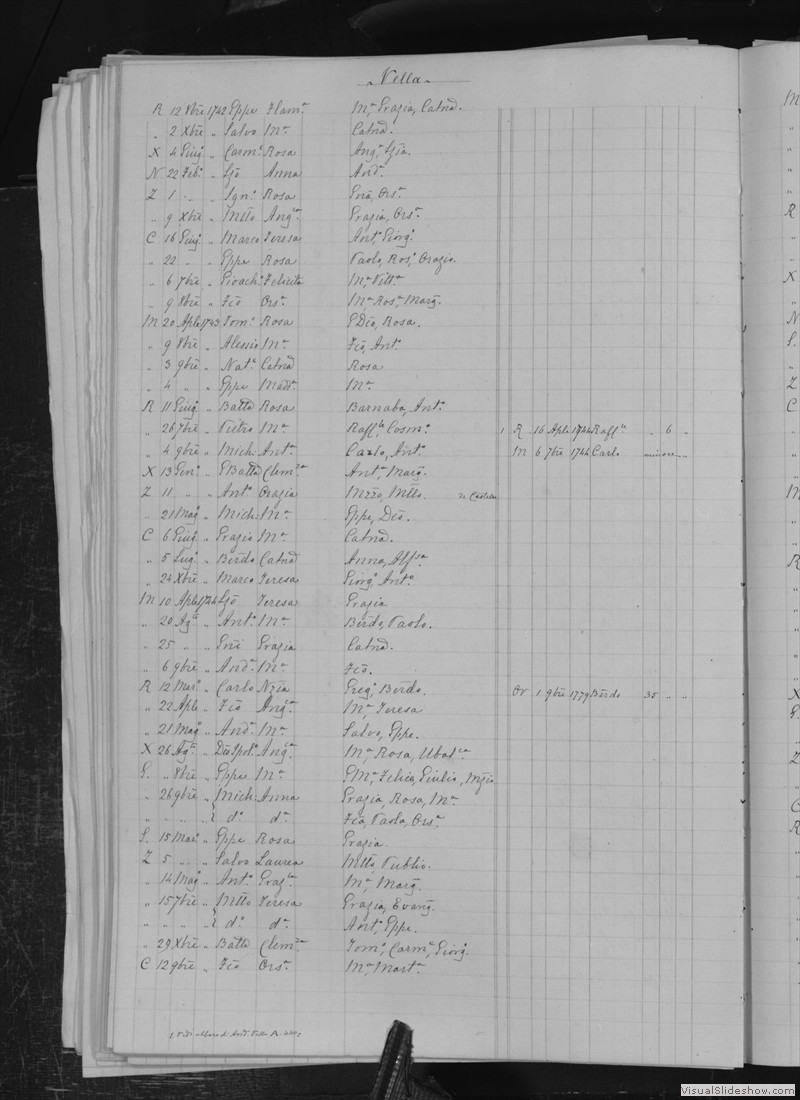 Vella
R 12 8bre 1742 Eppe Flam.a Ma, Grazia, Catna.
" 2 Xbre " Salvo Ma Catna.
X 4 Giug.o " Carm.o Rosa Ang.o
N 22 Feb.o " Anna And.a
Z 1 " " Ign.o Rosa Ors.a
" 9 Xbre " Mtto Ang.ca Grazia, Ors.a
C 16 Giug.o " Marco Teresa Ant.o, Giorg.o
" 22 " " Eppe Rosa Paolo, Ros.o, Orazio.
" 6 7bre " Gioach.o Felicita Ma, Vitt.a
" 9 8bre " Fco Ors.a Ma, Ros.a, Marg.
M 20 Aple 1743 Tom.o Rosa GDco, Rosa.
" 9 8bre " Alessio Ma Fco, Ant.o
" 3 9bre " Nat.e Catna Rosa
" 4 " " Eppe Madd.a Ma
R 11 Giug.o " Batta Rosa Barnaba, Ant.o
" 26 7bre " Pietro Ma Raff.le, Cosm.o 1 R 16 Aple 1744 Raff.le " 6 "
" 4 9bre " Mich. Ant.a Carlo, Ant.o M 6 7bre 1744 Carlo minore "
X 13 Gen.o " GBatta Clem.za Ant.o, Marg.
Z 11 " " Ant.o Grazia Mtto.
" 21 Mag.o " Mich. Ma Eppe, Dco.
C 6 Giug.o " Grazio Ma Catna.
" 5 Lug.o " Berdo Catna Anna, Alf.sa
" 24 Xbre " Marco Teresa Giorg.o, Ant.o
M 10 Aple 1744 Teresa Grazia
" 20 Ag.to " Ant.o Ma Berdo, Paolo.
" 25 " " Grazia Catna.
" 6 9bre " And.a Ma Fco.
R 12 Mar.o " Carlo Nzia Greg.o, Berdo. Or 1 9bre 1779 Berdo 35 " "
" 22 Aple " Fco Ang.ca Ma, Teresa
" 21 Mag.o " And.a Ma Salvo, Eppe.
X 26 Ag.to " Ang.ca Ma, Rosa, Ubal.ca
G. " 8bre " Eppe Ma GMa, Felice, Giulio,
" 26 9bre " Mich. Anna Grazia, Rosa, Ma
" " " " d.o d.a Fco, Paola, Ors.a
S. 15 Mar.o " Eppe Rosa Grazia
Z 5 " " Salvo Laurea Mtto, Publio.
" 14 Mag.o " Ant.o Graz.la Ma, Marg.
" 15 7bre " Mtto Teresa Grazia, Evang.
" " " " d.o d.a Ant.o, Eppe.
" 29 Xbre " Batta Clem.za Tom.o, Carm.o, Giorg.o
C 12 9bre " Fco Ors.a Ma, Mart.a
1 Vedi albero di And.a Vella
VisualSlideshow.com